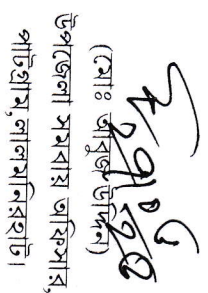 (মোঃ আবুল উদ্দিন)
উপজেলা সমবায় অফিসার,
পাটগ্রাম,লালমনিরহাট।